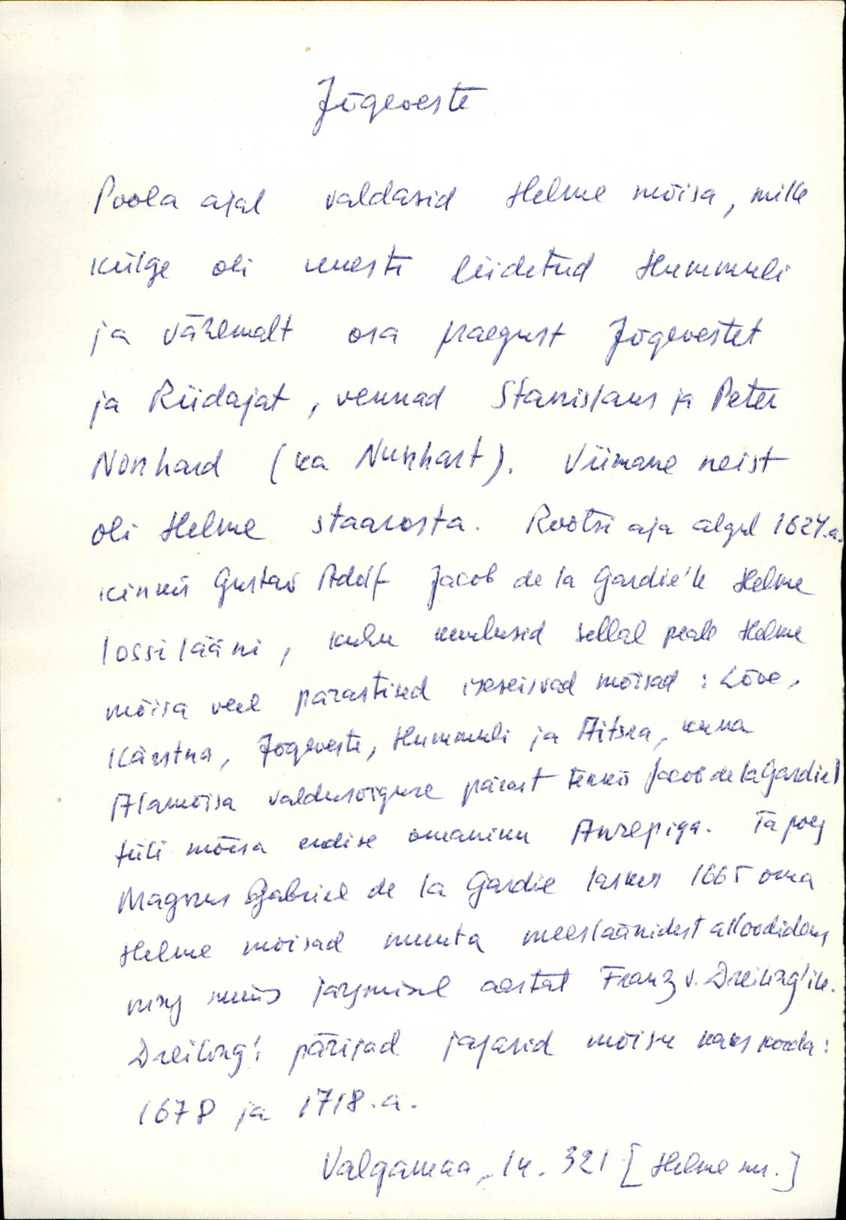 Jõgeveste
Poola ajal valdasid Helme mõisa, mille
külge oli veel liidetud Hummuli
ja vähemalt osa praegust Jõgevestet
ja Riidajat, vennad Stanislaus ja Peter
Nonhard (ka Nunhart). Viimane neist
oli Helme staarosta. Rootsi aja algul 1624.a.
kinkis Gustav Adolf Jacob de la Gardie'le Helme
lossilääni, kuhu kuulusid sellal peale Helme
mõisa veel pärastised iseseisvad mõisad: Lõve,
Kärstna, Jõgeveste, Hummuli ja Aitsra, kuna
Alamõisa valdusõiguse pärast tekkis Jacob de la Gardiel
tüli mõisa endise omaniku Anrepiga. Ta poeg
Magnus Gabriel de la Gardie laskis 1665 oma
Helme mõisad muuta meesläänidest alloodideks
ning müüs järgmisel aastal Franz v. Dreiling'ile.
Dreiling'i pärijad jagasid mõisu kaks korda:
1678 ja 1718.a.
Valgamaa, lk. 321 [Helme mr.]